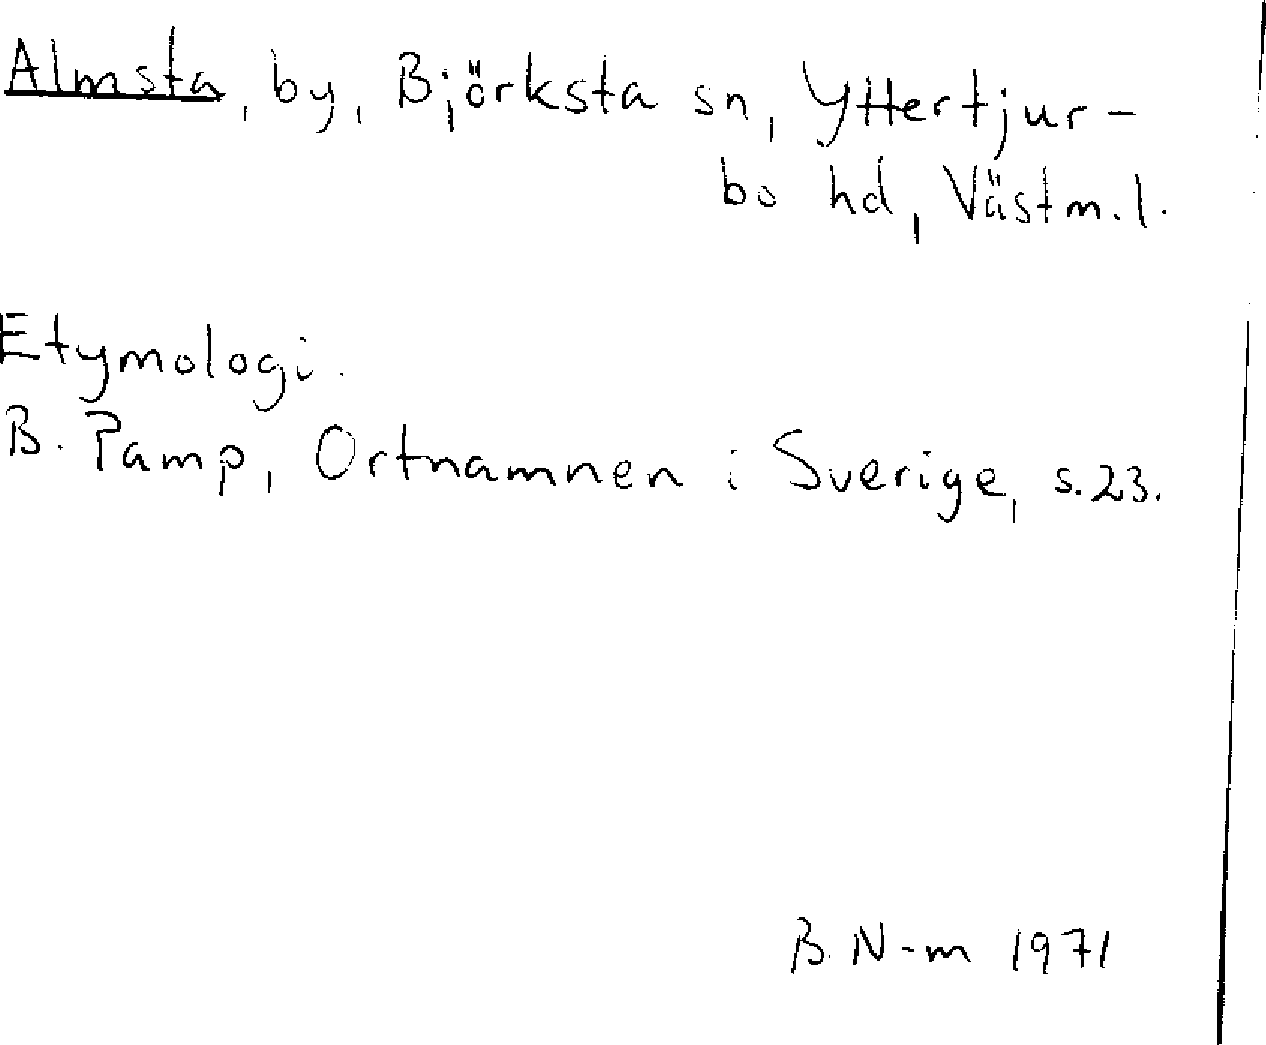 Almsta, by, Björksta sn, Yttertjur-
bo hd, Västm.l.
Etymologi.
B. Pamp, Ortnamnen i Sverige, s.23.
B. N-m 1971